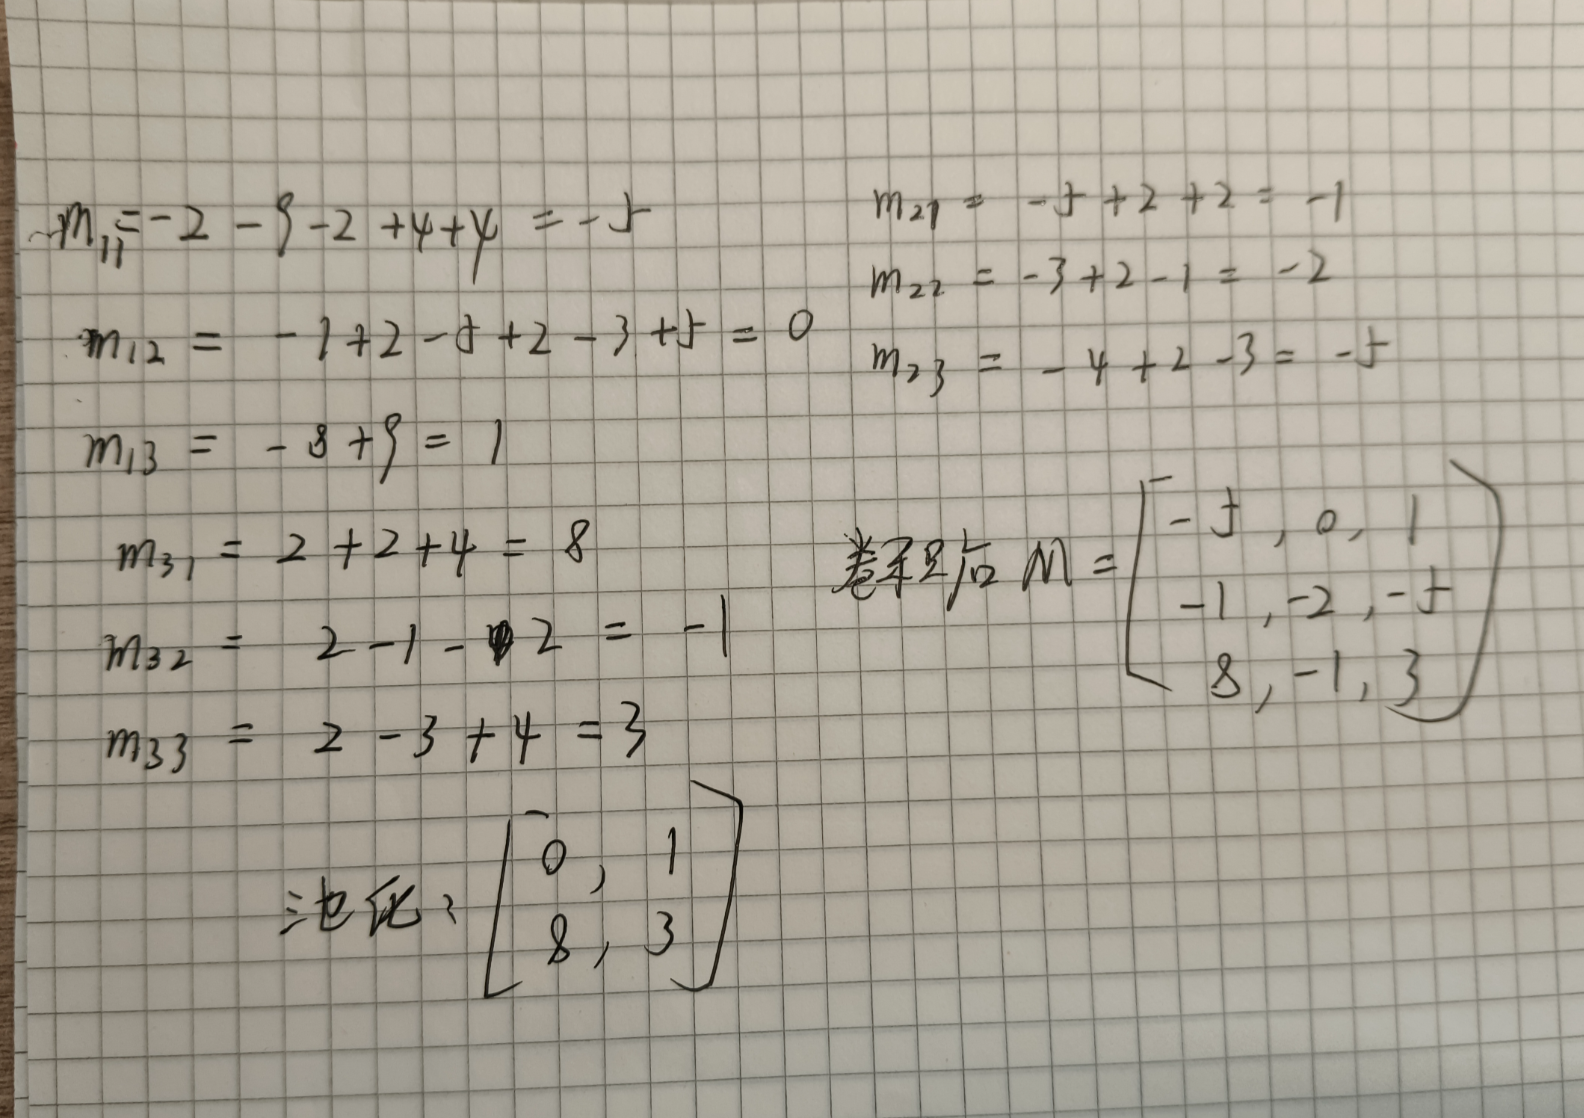 m₁₁ = -2 - 9 - 2 + 4 + 4 = -5
m₁₂ = -1 + 2 - 5 + 2 - 3 + 5 = 0
m₁₃ = -8 + 9 = 1
m₃₁ = 2 + 2 + 4 = 8
m₃₂ = 2 - 1 - 2 = -1
m₃₃ = 2 - 3 + 4 = 3
m₂₁ = -5 + 2 + 2 = -1
m₂₂ = -3 + 2 - 1 = -2
m₂₃ = -4 + 2 - 3 = -5
卷积后 M =
-5, 0, 1
-1, -2, -5
8, -1, 3
池化:
0, 1
8, 3